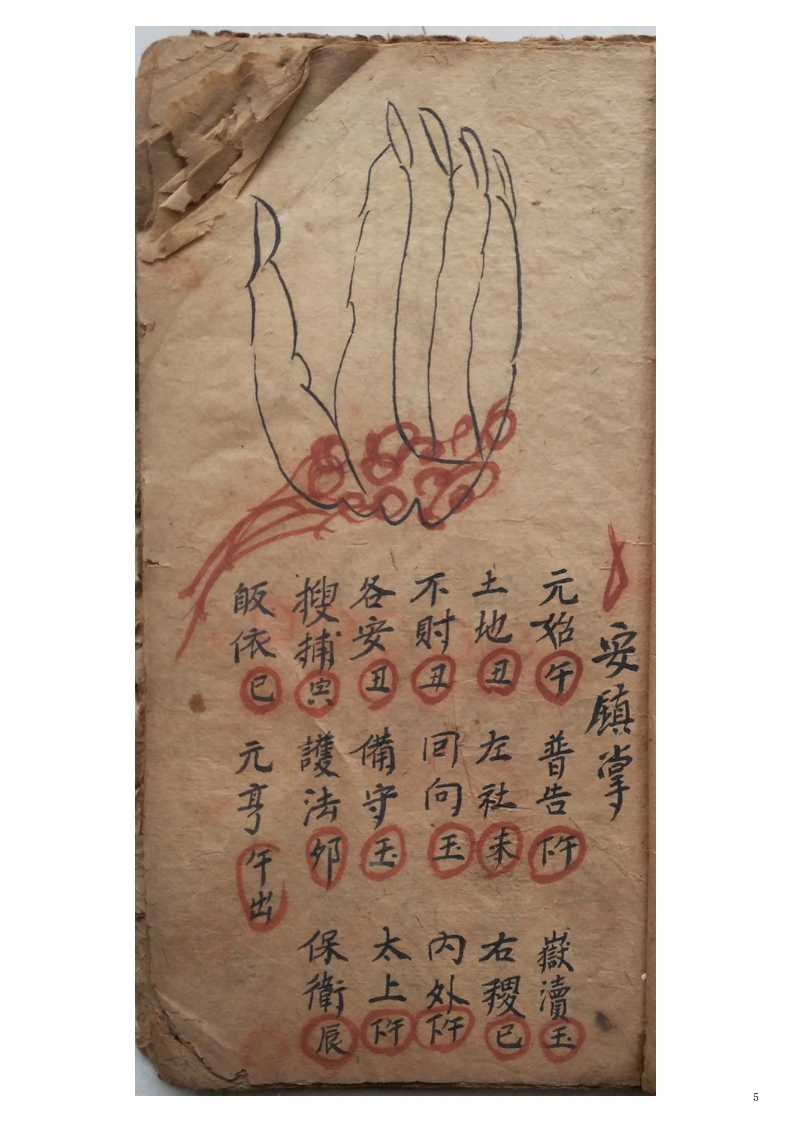 安鎮掌
元始午 普告下午 嶽瀆玉
土地丑 左社未 右稷巳
不財丑 回向玉 內外下午
各安丑 備守玉 太上下午
搜捕寅 護法夘 保衛辰
皈依巳 元亨午出
5